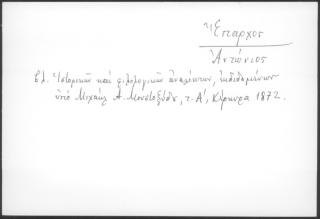 Ἔπαρχος
Ἀντώνιος
βλ. Ἱστορικῶν καὶ φιλολογικῶν ἀναλέκτων, ἐκδιδομένων
ὑπὸ Μιχαὴλ Α. Μουστοξύδη, τ. Α', Κέρκυρα 1872.